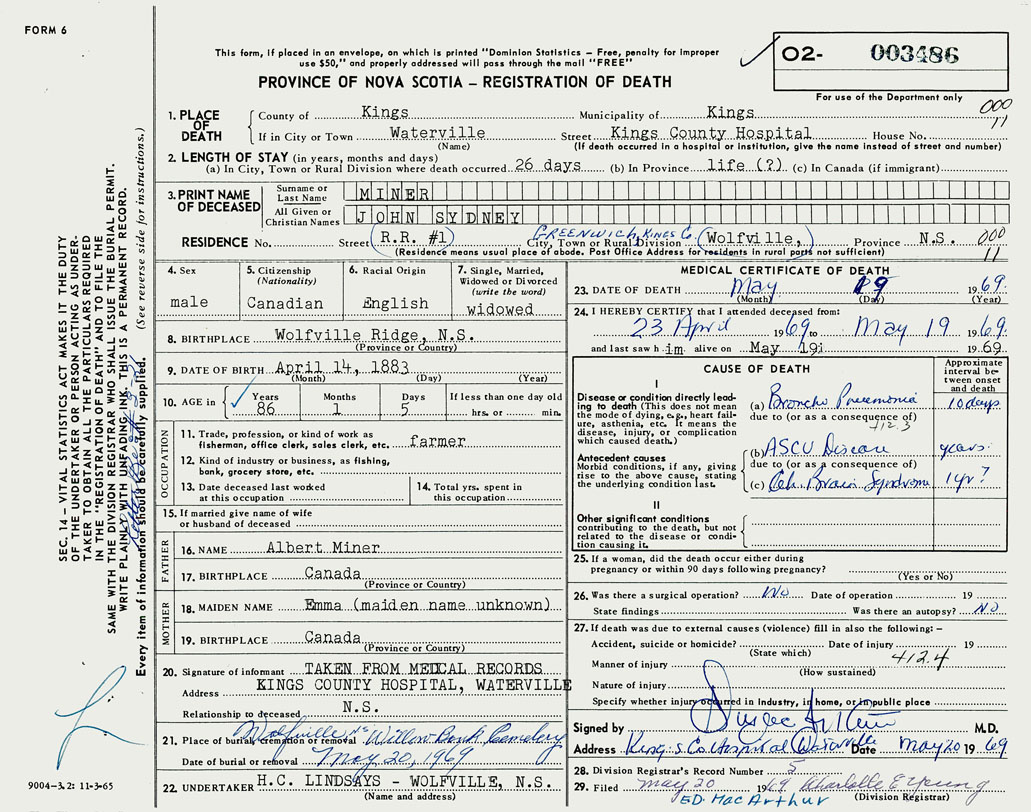 FORM 6
This form, if placed in an envelope, on which is printed "Dominion Statistics – Free, penalty for improper
use $50," and properly addressed will pass through the mail "FREE"
PROVINCE OF NOVA SCOTIA – REGISTRATION OF DEATH
02- 003486
For use of the Department only
000
11
1. PLACE OF DEATH County of Kings Municipality of Kings
If in City or Town Waterville Street Kings County Hospital House No.
(Name) (If death occurred in a hospital or institution, give the name instead of street and number)
2. LENGTH OF STAY (in years, months and days)
(a) In City, Town or Rural Division where death occurred 26 days (b) In Province life (?) (c) In Canada (if immigrant)
3. PRINT NAME OF DECEASED Surname or Last Name MINER
All Given or Christian Names JOHN SYDNEY
GREENWICH, KINGS C.
RESIDENCE No. Street (R.R. #1) City, Town or Rural Division (Wolfville,) Province N.S. 000
11
(Residence means usual place of abode. Post Office Address for residents in rural parts not sufficient)
4. Sex male
5. Citizenship (Nationality) Canadian
6. Racial Origin English
7. Single, Married, Widowed or Divorced (write the word) widowed
8. BIRTHPLACE Wolfville Ridge, N.S.
(Province or Country)
9. DATE OF BIRTH April 14, 1883
(Month) (Day) (Year)
10. AGE in Years 86 Months 1 Days 5 If less than one day old
hrs. or min.
OCCUPATION
11. Trade, profession, or kind of work as
fisherman, office clerk, sales clerk, etc. farmer
12. Kind of industry or business, as fishing,
bank, grocery store, etc.
13. Date deceased last worked
at this occupation
14. Total yrs. spent in
this occupation
15. If married give name of wife
or husband of deceased
FATHER
16. NAME Albert Miner
17. BIRTHPLACE Canada
(Province or Country)
MOTHER
18. MAIDEN NAME Emma (maiden name unknown)
19. BIRTHPLACE Canada
(Province or Country)
20. Signature of informant TAKEN FROM MEDICAL RECORDS
Address KINGS COUNTY HOSPITAL, WATERVILLE
Relationship to deceased N.S.
21. Place of burial, cremation or removal Wolfville Willow Bank Cemetery
Date of burial or removal May 20, 1969
22. UNDERTAKER H.C. LINDSAYS – WOLFVILLE, N.S.
(Name and address)
MEDICAL CERTIFICATE OF DEATH
23. DATE OF DEATH May 19 1969
(Month) (Day) (Year)
24. I HEREBY CERTIFY that I attended deceased from:
23 April 1969 to May 19 1969
and last saw him alive on May 19 1969
CAUSE OF DEATH
Approximate interval between onset and death
I
Disease or condition directly leading to death (This does not mean the mode of dying, e.g., heart failure, asthenia, etc. It means the disease, injury, or complication which caused death.)
(a) Broncho Pneumonia 10 days
due to (or as a consequence of)
412.3
Antecedent causes
Morbid conditions, if any, giving rise to the above cause, stating the underlying condition last.
(b) ASCV Disease years
due to (or as a consequence of)
(c) Ch. Brain Syndrome 1 yr ?
II
Other significant conditions
contributing to the death, but not related to the disease or condition causing it.
25. If a woman, did the death occur either during
pregnancy or within 90 days following pregnancy?
(Yes or No)
26. Was there a surgical operation? No Date of operation 19
State findings Was there an autopsy? No
27. If death was due to external causes (violence) fill in also the following: –
Accident, suicide or homicide? Date of injury 19
(State which) 412.4
Manner of injury
(How sustained)
Nature of injury
Specify whether injury occurred in industry, in home, or in public place
Signed by M.D.
Address Kings Co. Hospital Waterville Date May 20 1969
28. Division Registrar's Record Number 5
29. Filed May 20 1969 Charlotte E Young
ED. MacArthur (Division Registrar)
SEC. 14 – VITAL STATISTICS ACT MAKES IT THE DUTY
OF THE UNDERTAKER OR PERSON ACTING AS UNDER-
TAKER TO OBTAIN ALL THE PARTICULARS REQUIRED
IN THE "REGISTRATION OF DEATH" AND TO FILE THE
SAME WITH THE DIVISION REGISTRAR WHO SHALL ISSUE THE BURIAL PERMIT.
WRITE PLAINLY WITH UNFADING INK. THIS IS A PERMANENT RECORD.
Every item of information should be carefully supplied. (See reverse side for instructions.)
9004-3.2: 11-3-65